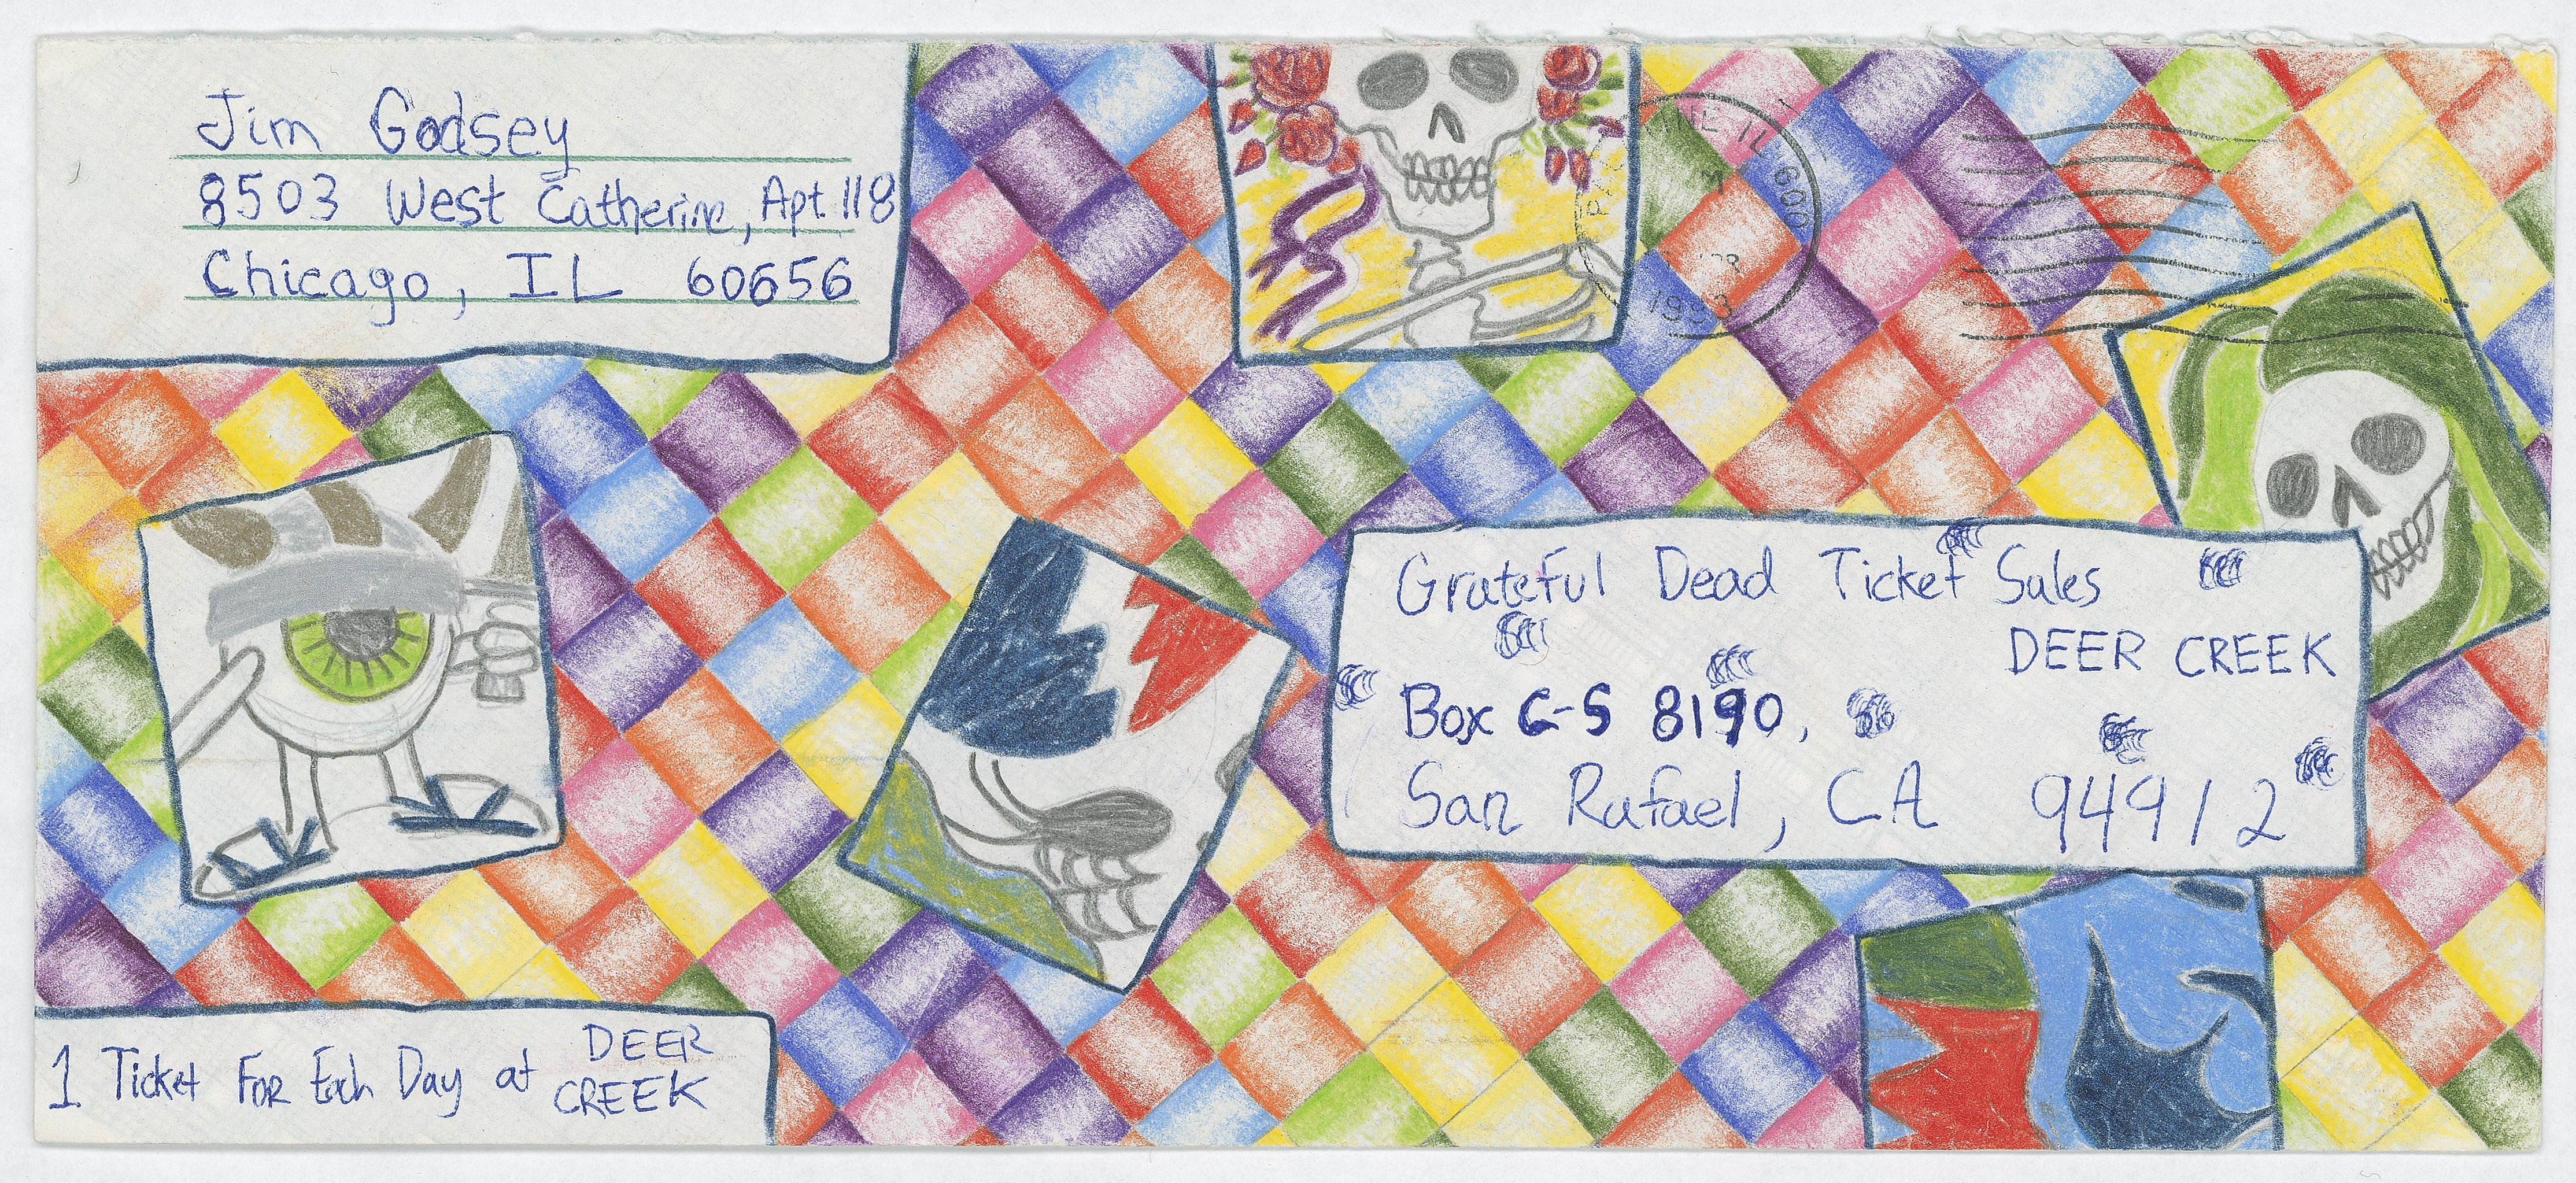 Jim Godsey
8503 West Catherine, Apt. 118
Chicago, IL 60656
IL 600
1993
Grateful Dead Ticket Sales
DEER CREEK
Box C-S 8190,
San Rafael, CA 94912
1 Ticket For Each Day at DEER
CREEK